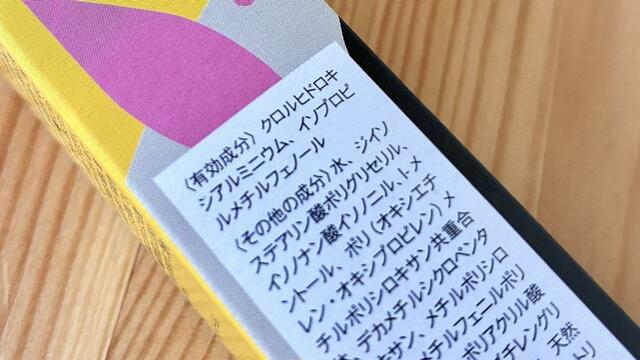 〈有効成分〉クロルヒドロキ
シアルミニウム、イソプロピ
ルメチルフェノール
〈その他の成分〉水、ジイソ
ステアリン酸ポリグリセリル、
イソノナン酸イソノニル、トメ
ントール、ポリ(オキシエチ
レン・オキシプロピレン)メ
チルポリシロキサン共重合
デカメチルシクロペンタ
キサン、メチルポリシロ
チルフェニルポリ
ポリアクリル酸
メチレングリ
天然